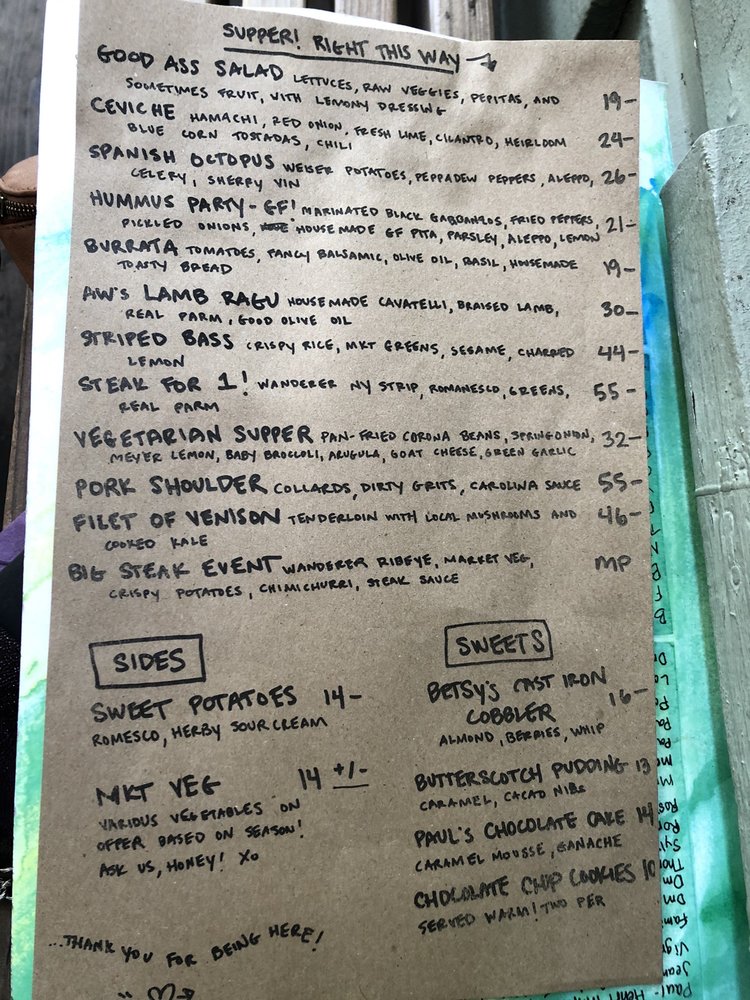 SUPPER! RIGHT THIS WAY →
GOOD ASS SALAD LETTUCES, RAW VEGGIES, PEPITAS, AND 19-
SOMETIMES FRUIT, WITH LEMONY DRESSING
CEVICHE HAMACHI, RED ONION, FRESH LIME, CILANTRO, HEIRLOOM 24-
BLUE CORN TOSTADAS, CHILI
SPANISH OCTOPUS WEISER POTATOES, PEPPADEW PEPPERS, ALEPPO, 26-
CELERY, SHERRY VIN
HUMMUS PARTY-GF! MARINATED BLACK GARBANZOS, FRIED PEPPERS, 21-
PICKLED ONIONS, HOUSEMADE GF PITA, PARSLEY, ALEPPO, LEMON
BURRATA TOMATOES, FANCY BALSAMIC, OLIVE OIL, BASIL, HOUSEMADE 19-
TOASTY BREAD
AW'S LAMB RAGU HOUSEMADE CAVATELLI, BRAISED LAMB, 30-
REAL PARM, GOOD OLIVE OIL
STRIPED BASS CRISPY RICE, MKT GREENS, SESAME, CHARRED 44-
LEMON
STEAK FOR 1! WANDERER NY STRIP, ROMANESCO, GREENS, 55-
REAL PARM
VEGETARIAN SUPPER PAN-FRIED CORONA BEANS, SPRING ONION, 32-
MEYER LEMON, BABY BROCCOLI, ARUGULA, GOAT CHEESE, GREEN GARLIC
PORK SHOULDER COLLARDS, DIRTY GRITS, CAROLINA SAUCE 55-
FILET OF VENISON TENDERLOIN WITH LOCAL MUSHROOMS AND 46-
COOKED KALE
BIG STEAK EVENT WANDERER RIBEYE, MARKET VEG, MP
CRISPY POTATOES, CHIMICHURRI, STEAK SAUCE
SIDES
SWEET POTATOES 14-
ROMESCO, HERBY SOUR CREAM
MKT VEG 14 +/-
VARIOUS VEGETABLES ON
OFFER BASED ON SEASON!
ASK US, HONEY! XO
SWEETS
BETSY'S CAST IRON
COBBLER 16-
ALMOND, BERRIES, WHIP
BUTTERSCOTCH PUDDING 13
CARAMEL, CACAO NIBS
PAUL'S CHOCOLATE CAKE 14
CARAMEL MOUSSE, GANACHE
CHOCOLATE CHIP COOKIES 10
SERVED WARM! TWO PER
...THANK YOU FOR BEING HERE!